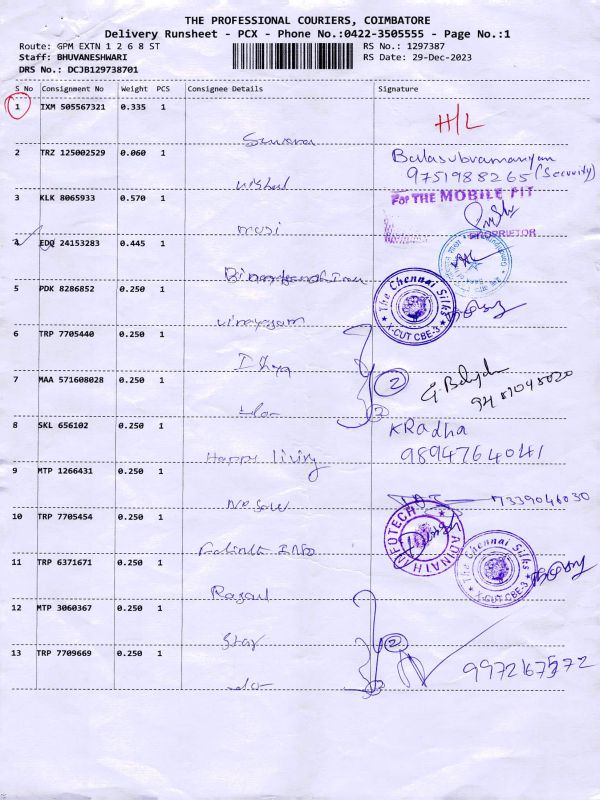 THE PROFESSIONAL COURIERS, COIMBATORE
Delivery Runsheet - PCX - Phone No.:0422-3505555 - Page No.:1
Route: GPM EXTN 1 2 6 8 ST
RS No.: 1297387
Staff: BHUVANESHWARI
RS Date: 29-Dec-2023
DRS No.: DCJB129738701
S No Consignment No Weight PCS Consignee Details Signature
1 IXM 505567321 0.335 1
H/L
2 TRZ 125002529 0.060 1
Balasubramaniyan
9751988265 (Security)
3 KLK 8065933 0.570 1
For THE MOBILE FIT
PROPRIETOR
4 EDQ 24153283 0.445 1
5 PDK 8286852 0.250 1
The Chennai Silks
X-CUT CBE-3
vinayagam
6 TRP 7705440 0.250 1
Idhya
2
7 MAA 571608028 0.250 1
-do-
8 SKL 656102 0.250 1
KRadha
9894764041
Happy living
9 MTP 1266431 0.250 1
7339046030
10 TRP 7705454 0.250 1
ADINATH INFOTECH
11 TRP 6371671 0.250 1
The Chennai Silks
X-CUT CBE-3
12 MTP 3060367 0.250 1
Star
2
13 TRP 7709669 0.250 1
-do-